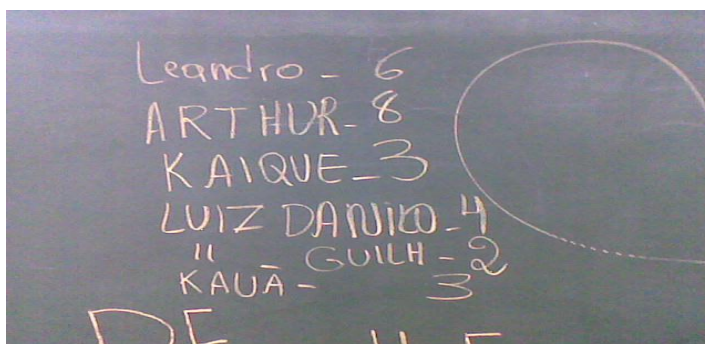 Leandro - 6
ARTHUR - 8
KAIQUE - 3
LUIZ DANILO - 4
" - GUILH - 2
KAUÃ - 3
DE